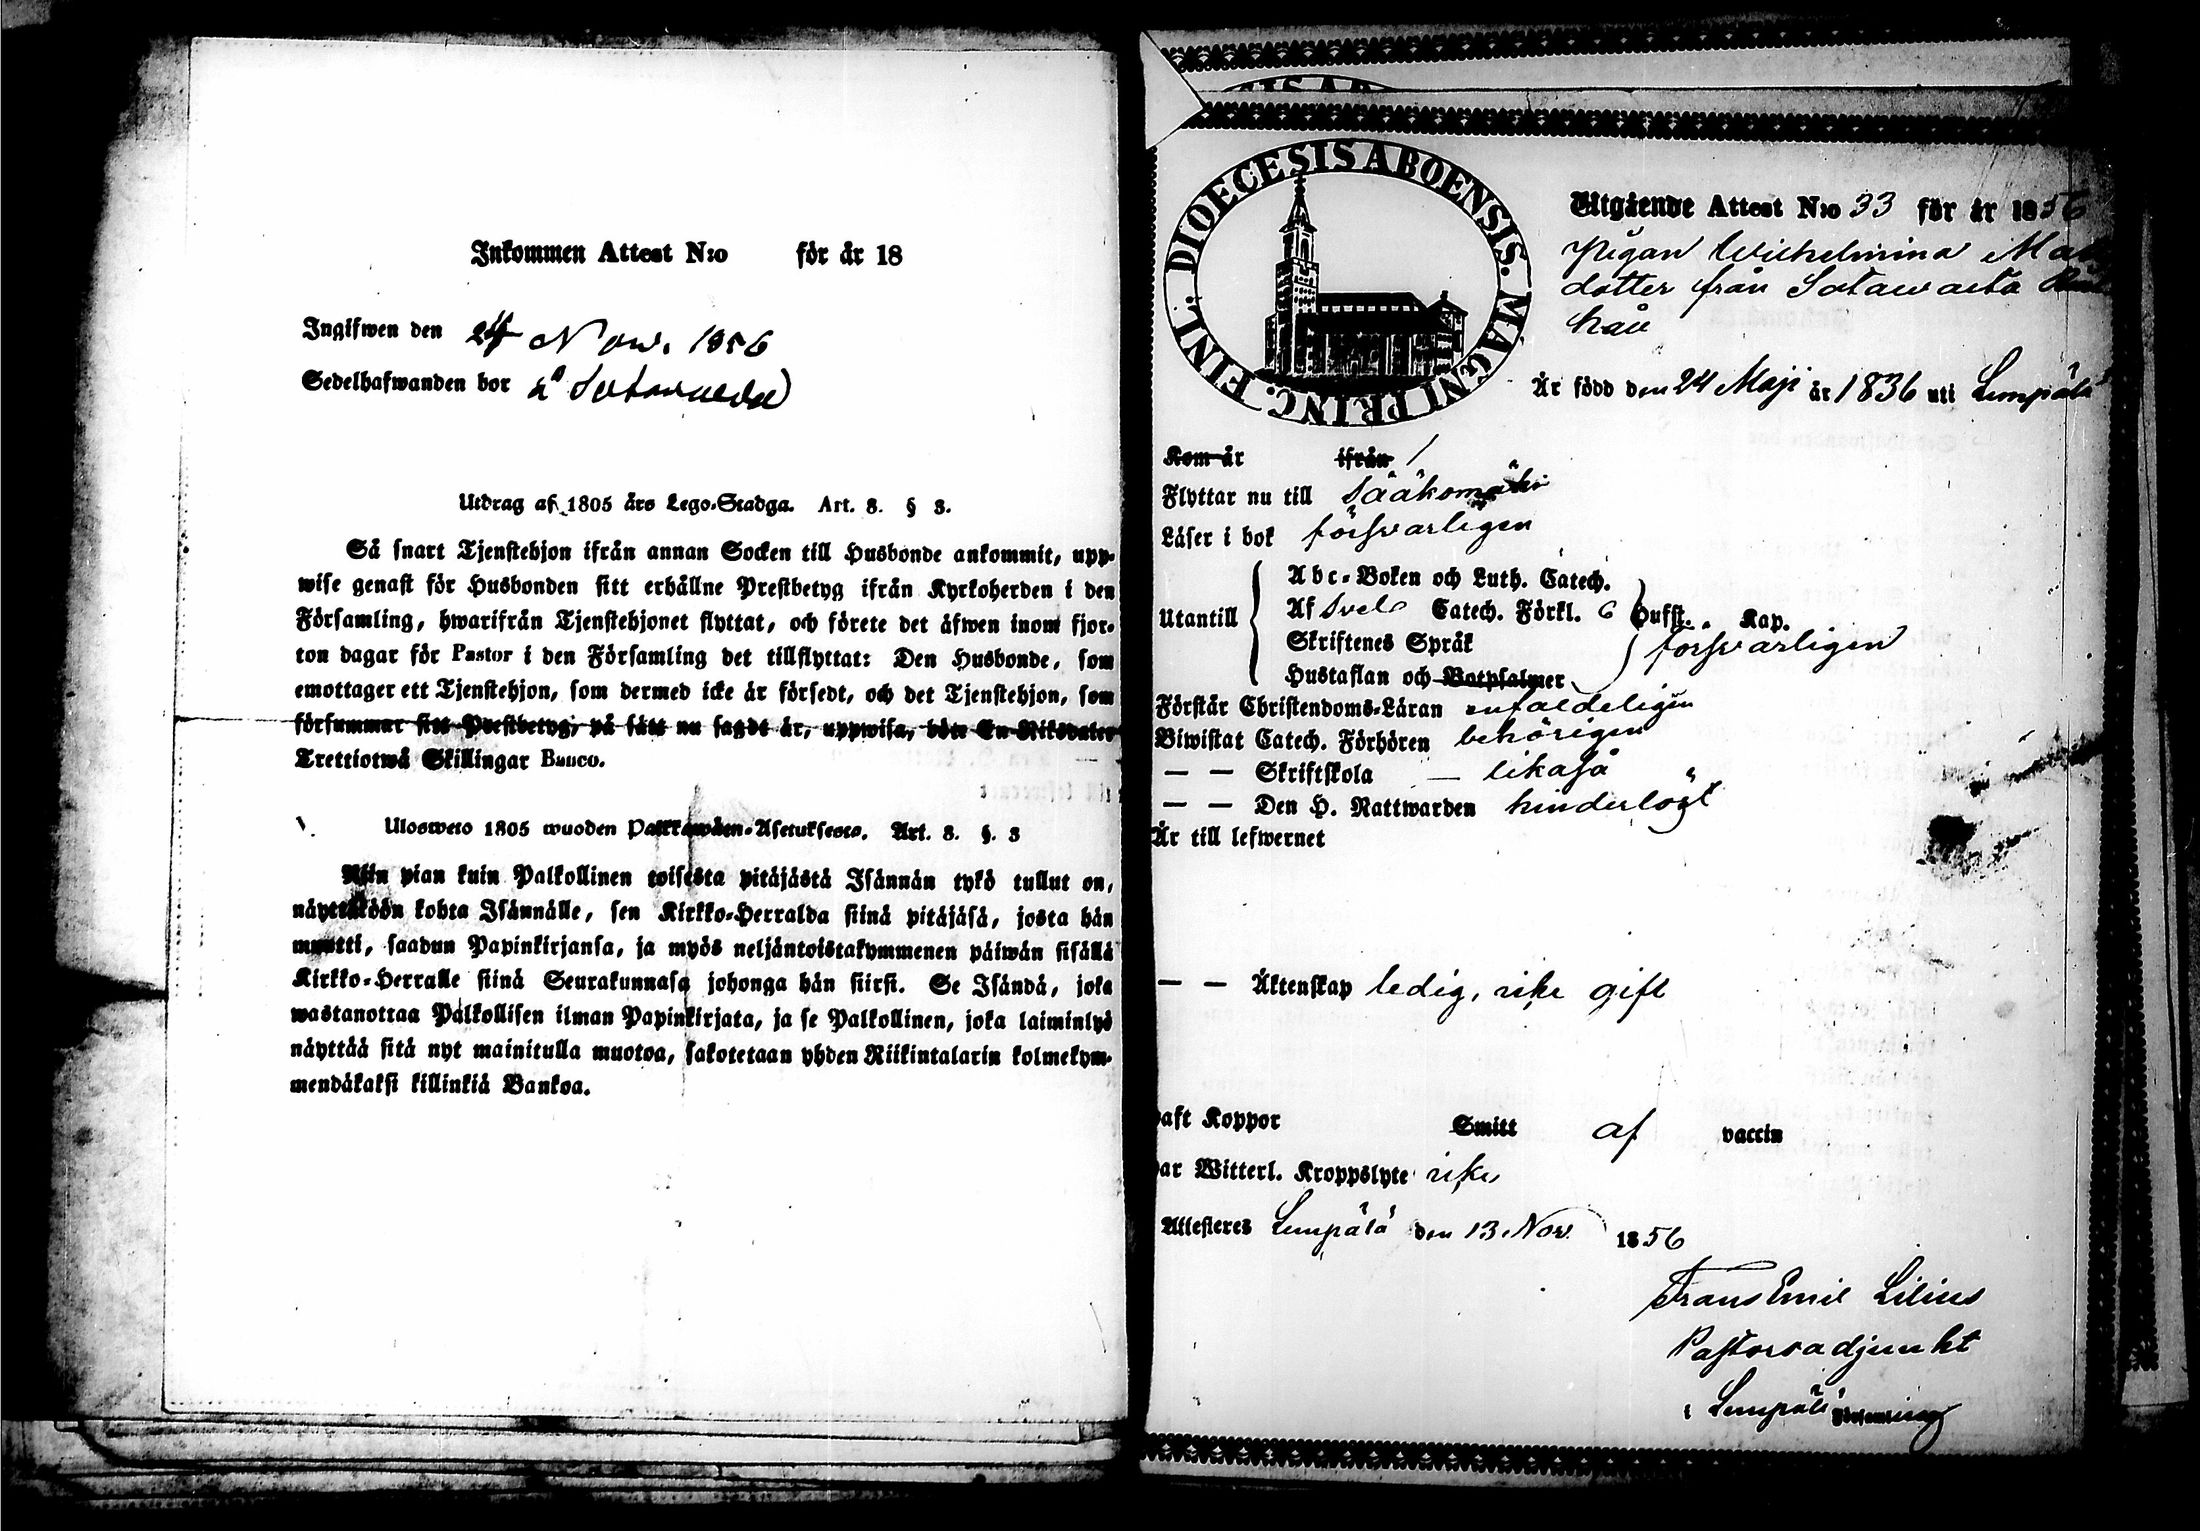 Inkommen Attest N:o för år 18
Ingifwen den 24 Nov. 1856
Sedelhafwanden bor å
Utdrag af 1805 års Lego-Stadga. Art. 8. § 3.
Så snart Tjenstehjon ifrån annan Socken till Husbonde ankommit, upp-
wise genast för Husbonden sitt erhållne Prestbetyg ifrån Kyrkoherden i den
Församling, hwarifrån Tjenstehjonet flyttat, och förete det äfwen inom fjor-
ton dagar för Pastor i den Församling det tillflyttat: Den Husbonde, som
emottager ett Tjenstehjon, som dermed icke är försedt, och det Tjenstehjon, som
försummar sitt Prestbetyg, på sätt nu sagdt är, uppwisa, böte En Riksdaler
Trettiotwå Skillingar Banco.
Ulosweto 1805 wuoden Palkkawäen-Asetuksesta. Art. 8. §. 3
Niin pian kuin Palkollinen toisesta pitäjästä Isännän tykö tullut on,
näyttäköön kohta Isännälle, sen Kirkko-Herralda siinä pitäjäsä, josta hän
muutti, saadun Papinkirjansa, ja myös neljäntoistakymmenen päiwän sisällä
Kirkko-Herralle siinä Seurakunnasa johonga hän siirsi. Se Isändä, joka
wastanottaa Palkollisen ilman Papinkirjata, ja se Palkollinen, joka laiminlyö
näyttää sitä nyt mainitulla muotoa, sakotetaan yhden Riikintalarin kolmekym-
mendäkaksi killinkiä Bankoa.
SIS AB
DIOECESIS ABOENSIS. MAGNI PRINC. FINL.
Utgående Attest N:o 33 för år 1856
Pigan Wilhelmina
dotter från
Är född den 24 Maji år 1836 uti Lempälä
Kom år ifrån
Flyttar nu till Sääksmäki
Läser i bok försvarligen
Abc-Boken och Luth. Catech.
Utantill Af Svel. Catech. Förkl. 6 Hufst. Kap.
Skriftenes Språk försvarligen
Hustaflan och Botpsalmer
Förstår Christendoms-Läran enfaldeligen
Biwistat Catech. Förhören behörigen
— — Skriftskola — likaså
— — Den H. Nattwarden hinderlöst
Är till lefwernet
— — Äktenskap ledig, icke gift
haft Koppor Smitt af vaccin
har Witterl. Kroppslyte icke
Attesteres Lempälä den 13 Nov. 1856
Frans Emil Lilius
Pastorsadjunkt
i Lempälä Församling